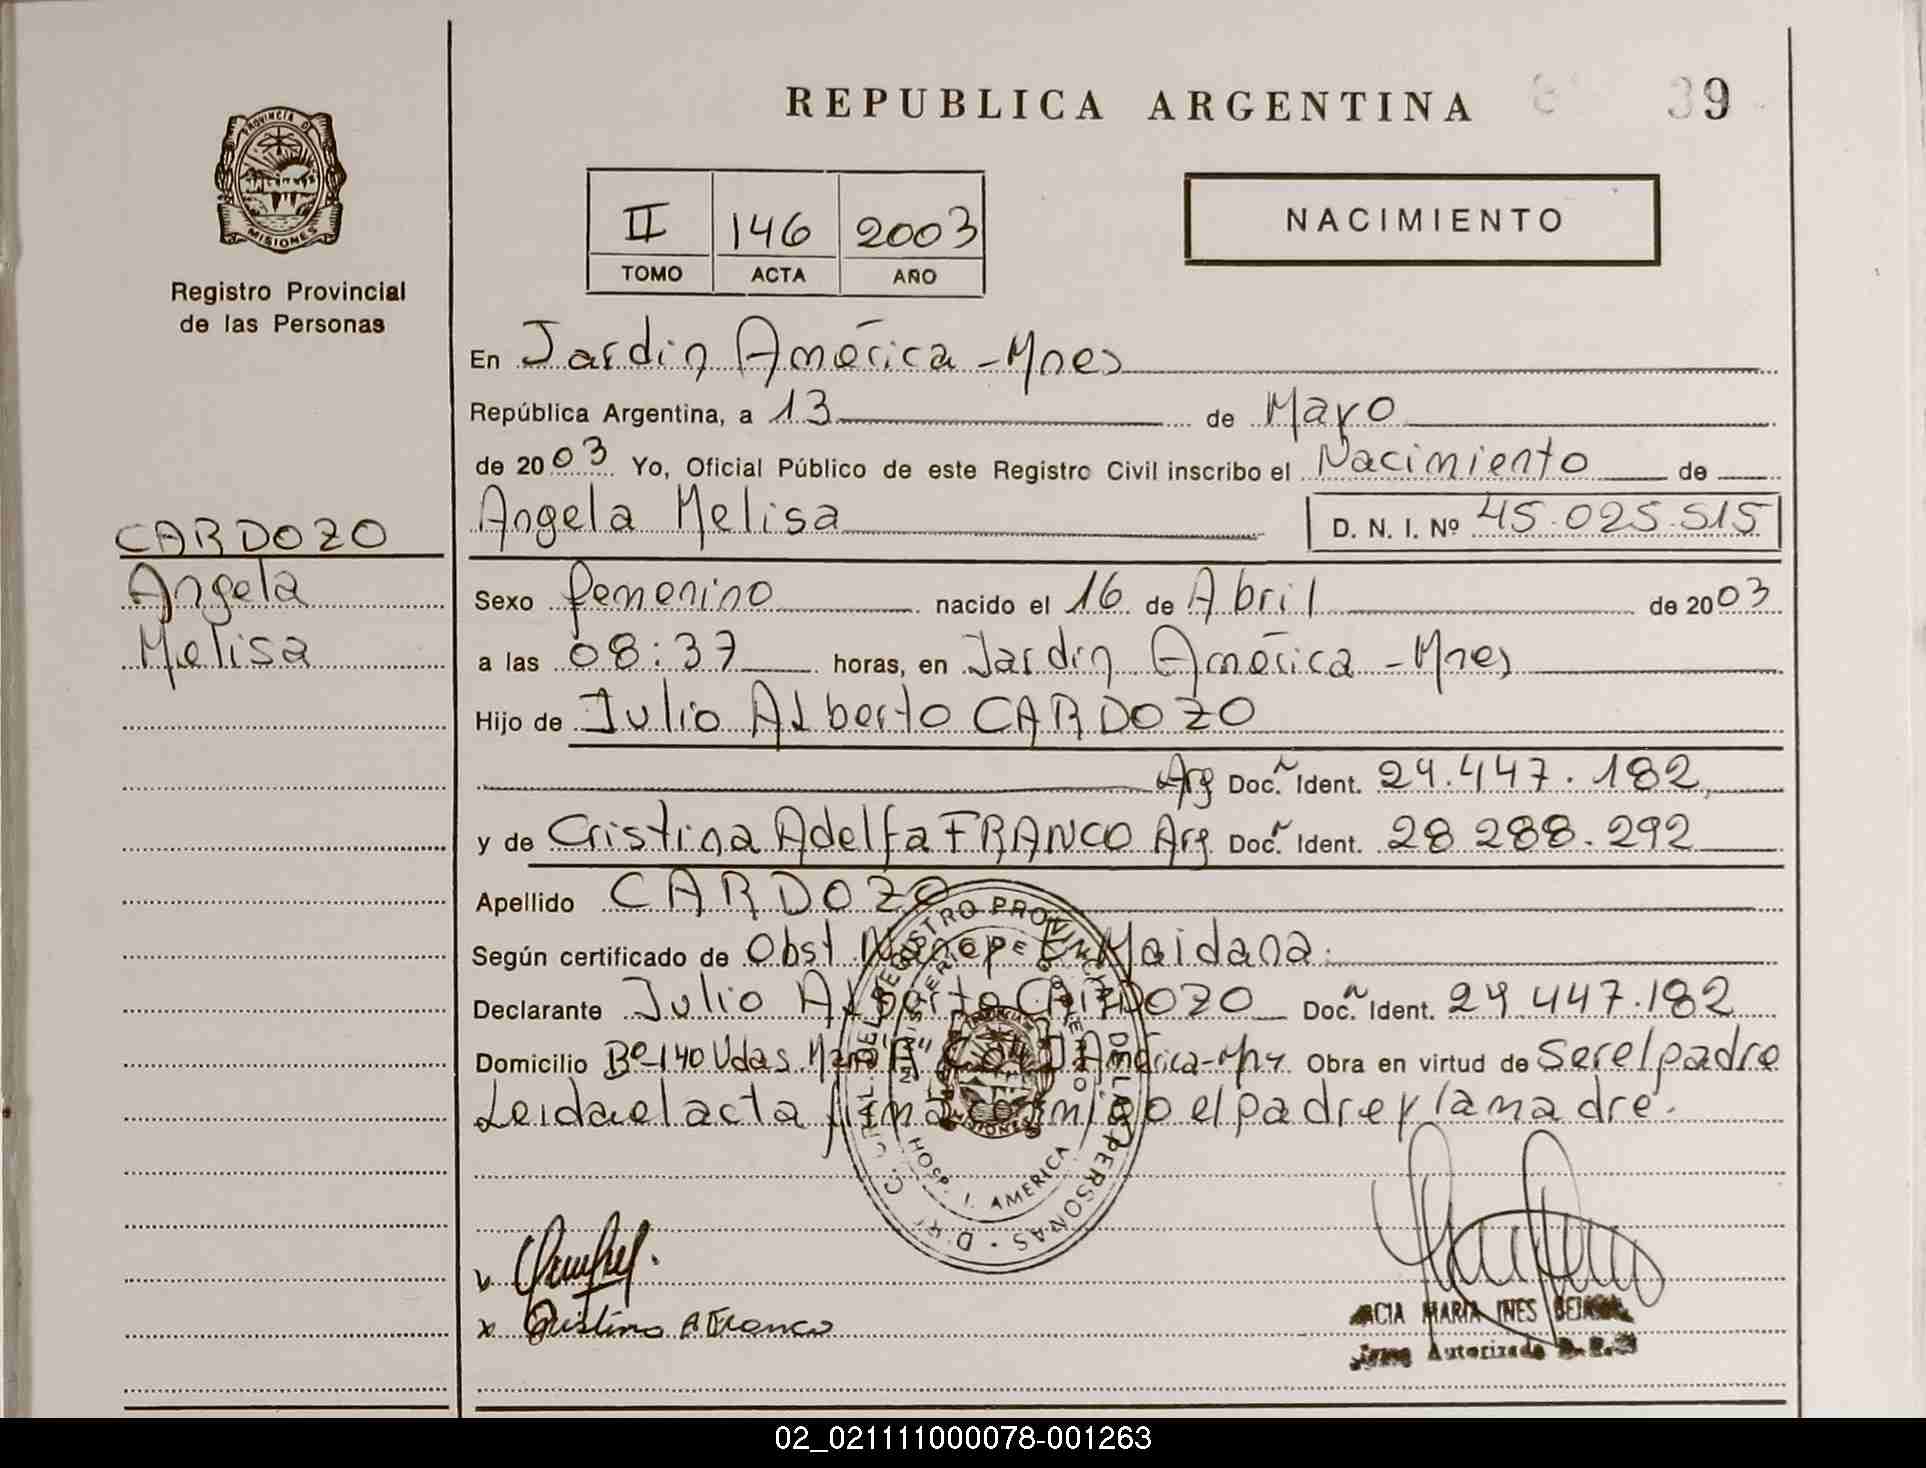 REPUBLICA ARGENTINA
39
PROVINCIA DE
MISIONES
Registro Provincial
de las Personas
II 146 2003
TOMO ACTA AÑO
NACIMIENTO
En Jardin América - Mnes
República Argentina, a 13 de Mayo
de 2003 Yo, Oficial Público de este Registro Civil inscribo el Nacimiento de
Angela Melisa D. N. I. Nº 45.025.515
CARDOZO
Angela
Melisa
Sexo femenino nacido el 16 de Abril de 2003
a las 08:37 horas, en Jardin América - Mnes
Hijo de Julio Alberto CARDOZO
Arg Doc. Ident. 24.447.182
y de Cristina Adelfa FRANCO Arg Doc. Ident. 28 288.292
Apellido CARDOZO
Según certificado de Obst Maidana
Declarante Julio Alberto CARDOZO Doc. Ident. 24 447.182
Domicilio Bº 140 Vdas. América Obra en virtud de ser el padre
Leida el acta firma conmigo el padre y la madre.
REGISTRO PROVINCIAL DE LAS PERSONAS
MINISTERIO DE GOBIERNO
HOSP. J. AMERICA
MISIONES
Cristina A Franco
MARIA INES
Autorizada
02_021111000078-001263